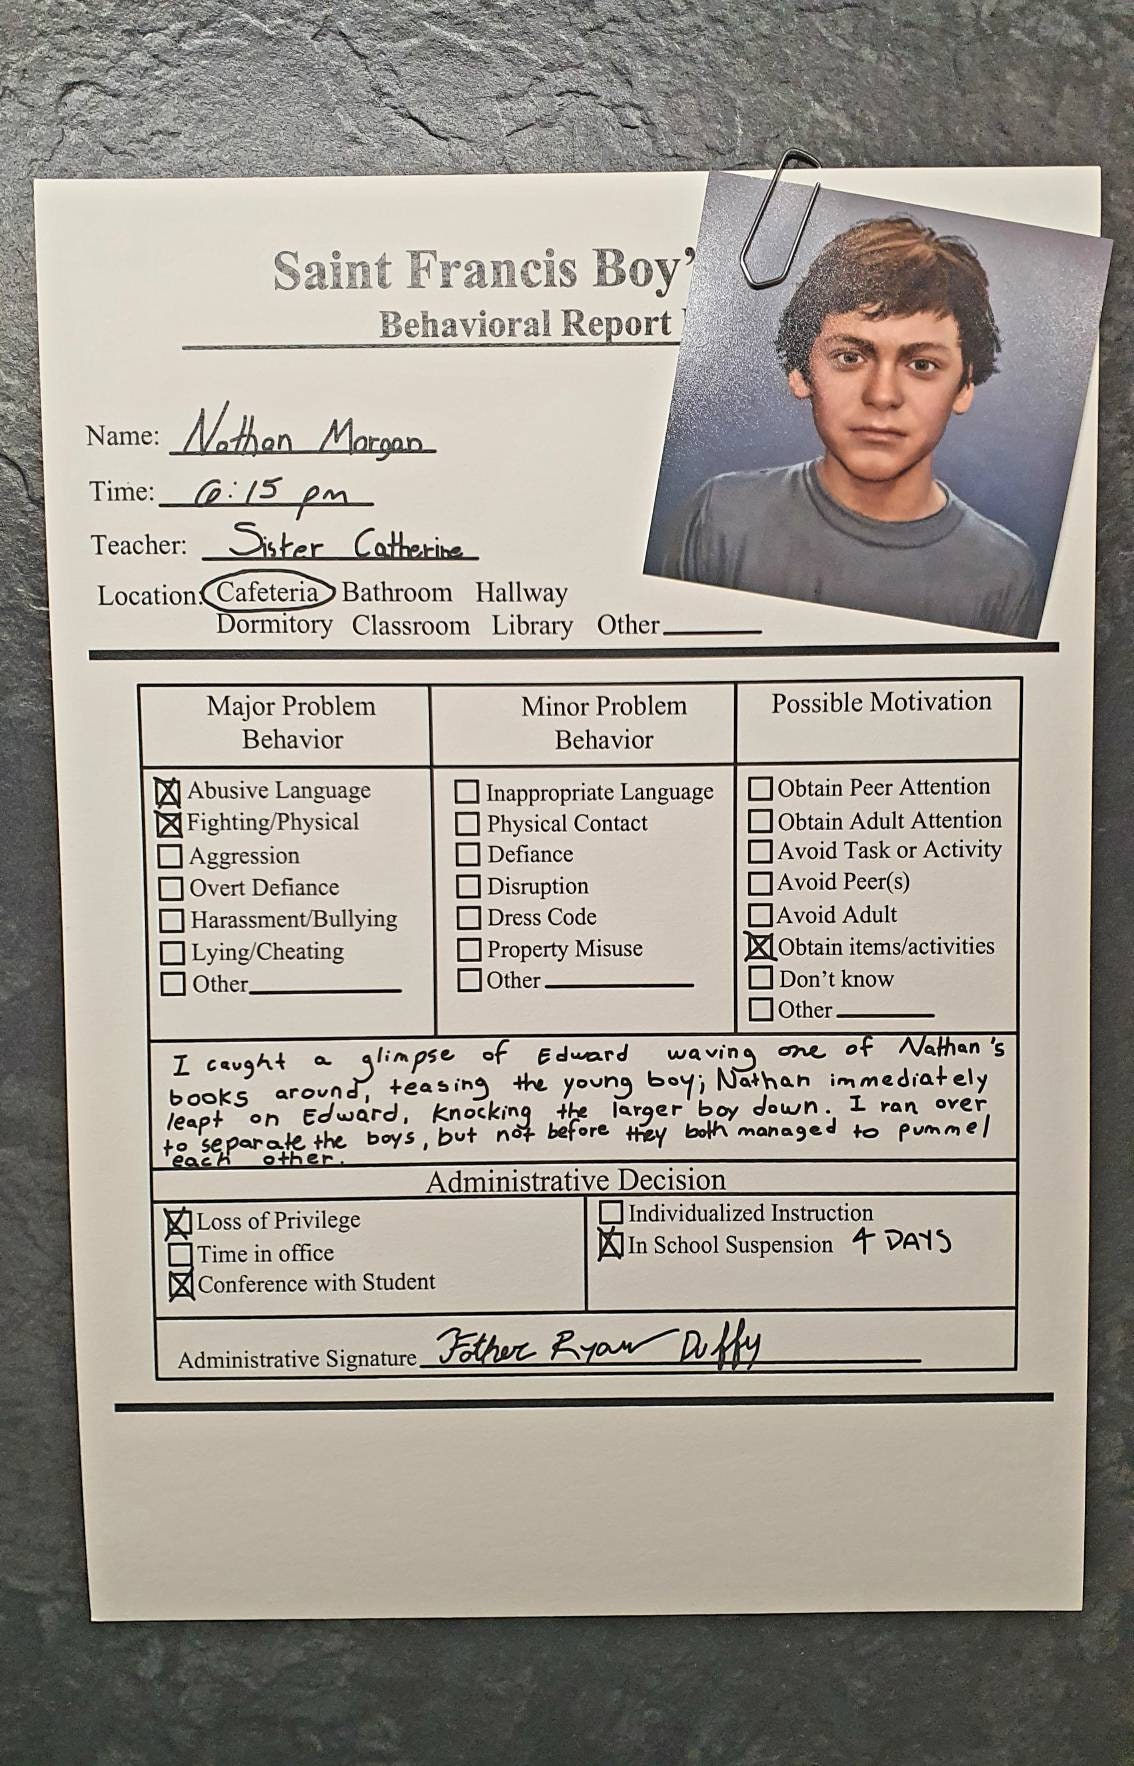 Saint Francis Boy'
Behavioral Report
Name: Nathan Morgan
Time: 6:15 pm
Teacher: Sister Catherine
Location: Cafeteria Bathroom Hallway
Dormitory Classroom Library Other
Major Problem
Behavior
Abusive Language
Fighting/Physical
Aggression
Overt Defiance
Harassment/Bullying
Lying/Cheating
Other
Minor Problem
Behavior
Inappropriate Language
Physical Contact
Defiance
Disruption
Dress Code
Property Misuse
Other
Possible Motivation
Obtain Peer Attention
Obtain Adult Attention
Avoid Task or Activity
Avoid Peer(s)
Avoid Adult
Obtain items/activities
Don't know
Other
I caught a glimpse of Edward waving one of Nathan's
books around, teasing the young boy; Nathan immediately
leapt on Edward, knocking the larger boy down. I ran over
to separate the boys, but not before they both managed to pummel
each other.
Administrative Decision
Loss of Privilege
Time in office
Conference with Student
Individualized Instruction
In School Suspension 4 DAYS
Administrative Signature Father Ryan Duffy